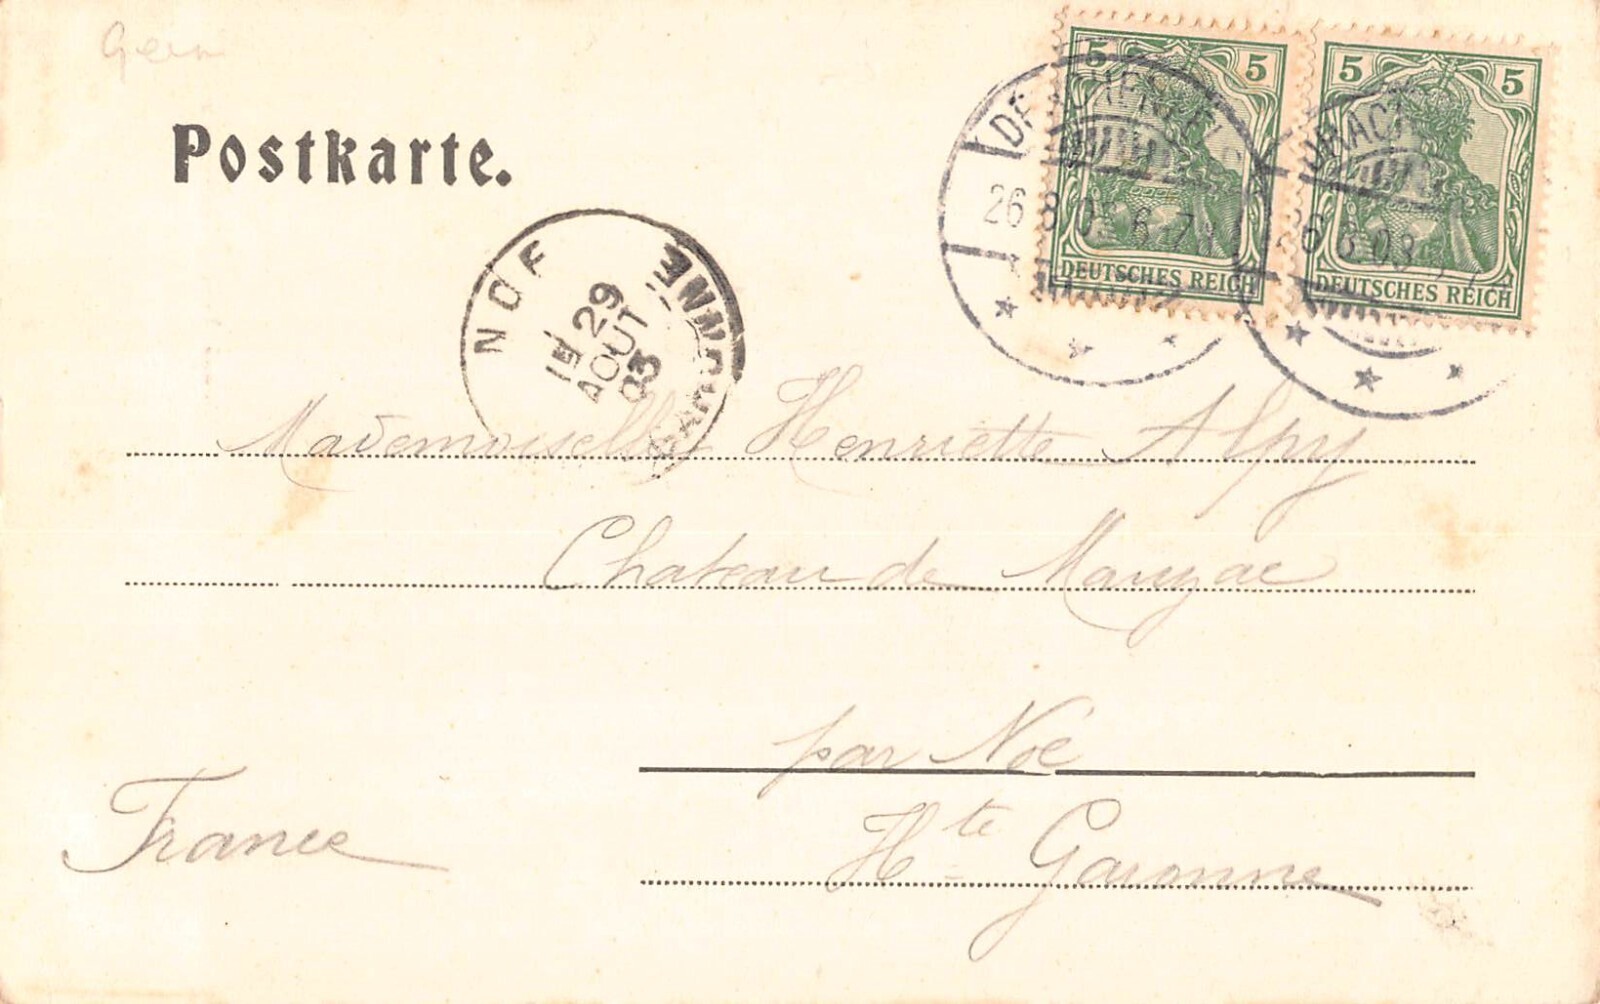 Postkarte.
5 5
DEUTSCHES REICH
5 5
DEUTSCHES REICH
DRACHENFELS
26.8.03 6-7N
DRACH
26.8.03
NOE
1E 29
AOUT
03
GARONNE
Mademoiselle Henriette Alpy
Chateau de Mauzac
par Noé
Hte Garonne
France